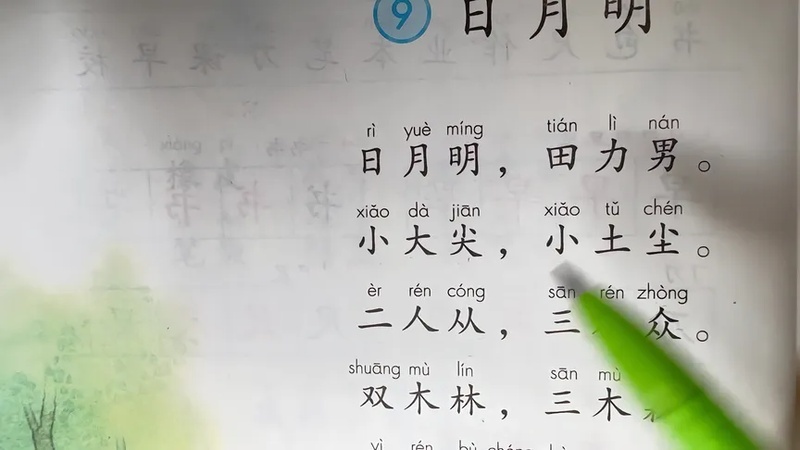 9 日月明
rì yuè míng tián lì nán
日月明，田力男。
xiǎo dà jiān xiǎo tǔ chén
小大尖，小土尘。
èr rén cóng sān rén zhòng
二人从，三众。
shuāng mù lín sān mù
双木林，三木